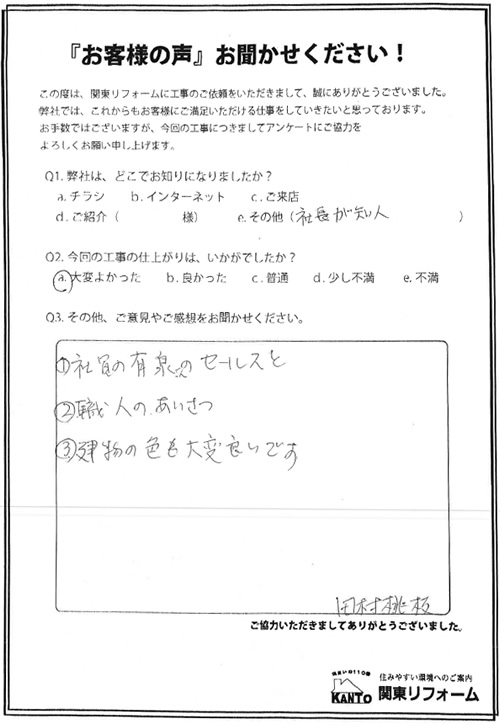 『お客様の声』お聞かせください！
この度は、関東リフォームに工事のご依頼をいただきまして、誠にありがとうございました。
弊社では、これからもお客様にご満足いただける仕事をしていきたいと思っております。
お手数ではございますが、今回の工事につきましてアンケートにご協力を
よろしくお願い申し上げます。
Q1. 弊社は、どこでお知りになりましたか？
a. チラシ b. インターネット c. ご来店
d. ご紹介（ 様） e. その他（社長が知人 ）
Q2. 今回の工事の仕上がりは、いかがでしたか？
a. 大変よかった b. 良かった c. 普通 d. 少し不満 e. 不満
Q3. その他、ご意見やご感想をお聞かせください。
①社員の有泉さんのセールスと
②職人のあいさつ
③建物の色も大変良いです
田村桃板
ご協力いただきましてありがとうございました。
住まいの110番
KANTO
住みやすい環境へのご案内
関東リフォーム